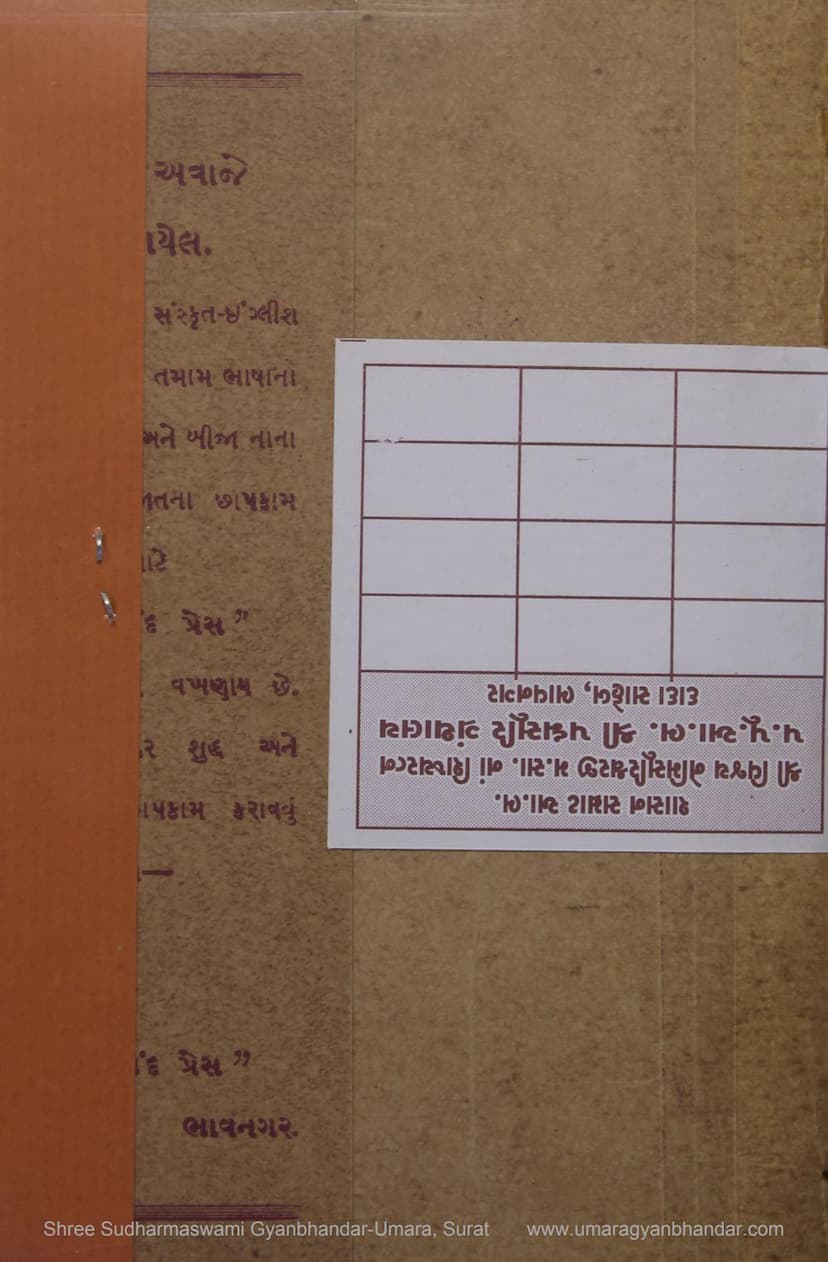 અવાજે
ાયેલ.
સંસ્કૃત-ઈંગ્લીશ
તમામ ભાષાના
અને બીજા નાના
જાતના છાપકામ
માટે
ંદ પ્રેસ”
વખણાય છે.
શુદ્ધ અને
છાપકામ કરાવવું
—
ંદ પ્રેસ”
ભાવનગર.
શાસન સમ્રાટ આ.ભ.
શ્રી વિજય નેમિસૂરીશ્વરજી મ.સા. નાં શિષ્યરત્ન
પ.પૂ.આ.ભ. શ્રી પદ્મસૂરિ ગ્રંથાલય
દાદા સાહેબ, ભાવનગર
Shree Sudharmaswami Gyanbhandar-Umara, Surat www.umaragyanbhandar.com